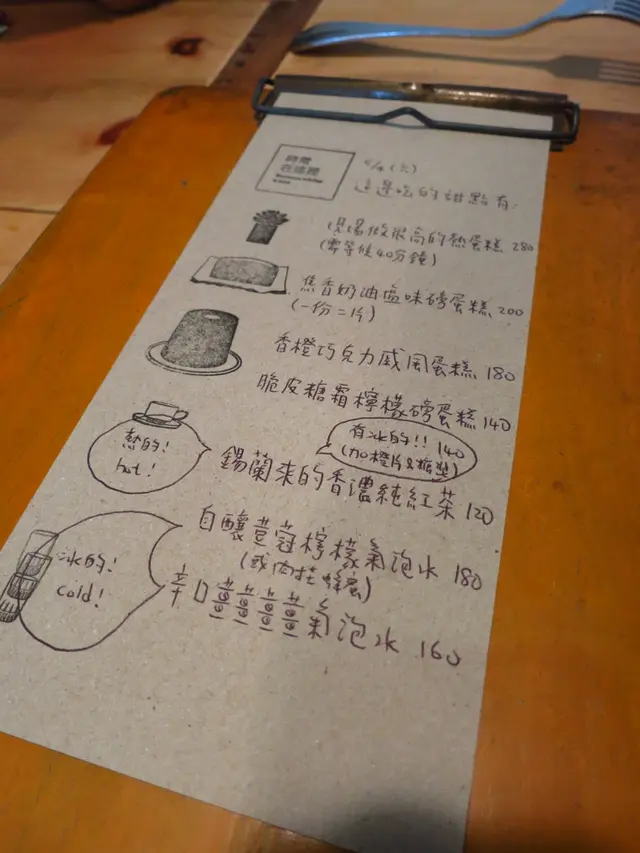 時常
在這裡
6/4 (六)
這邊吃的甜點有:
(現場做很高的熱蛋糕 280
(需等候40分鐘)
焦香奶油鹽味磅蛋糕 200
(一份=1片)
香橙巧克力戚風蛋糕 180
脆皮糖霜檸檬磅蛋糕 140
熱的!
hot!
有冰的!! 140
(加橙片&糖塊)
錫蘭來的香濃純紅茶 120
冰的!
cold!
自釀荳蔻檸檬氣泡水 180
(或肉桂蜂蜜)
辛口薑薑薑薑氣泡水 160